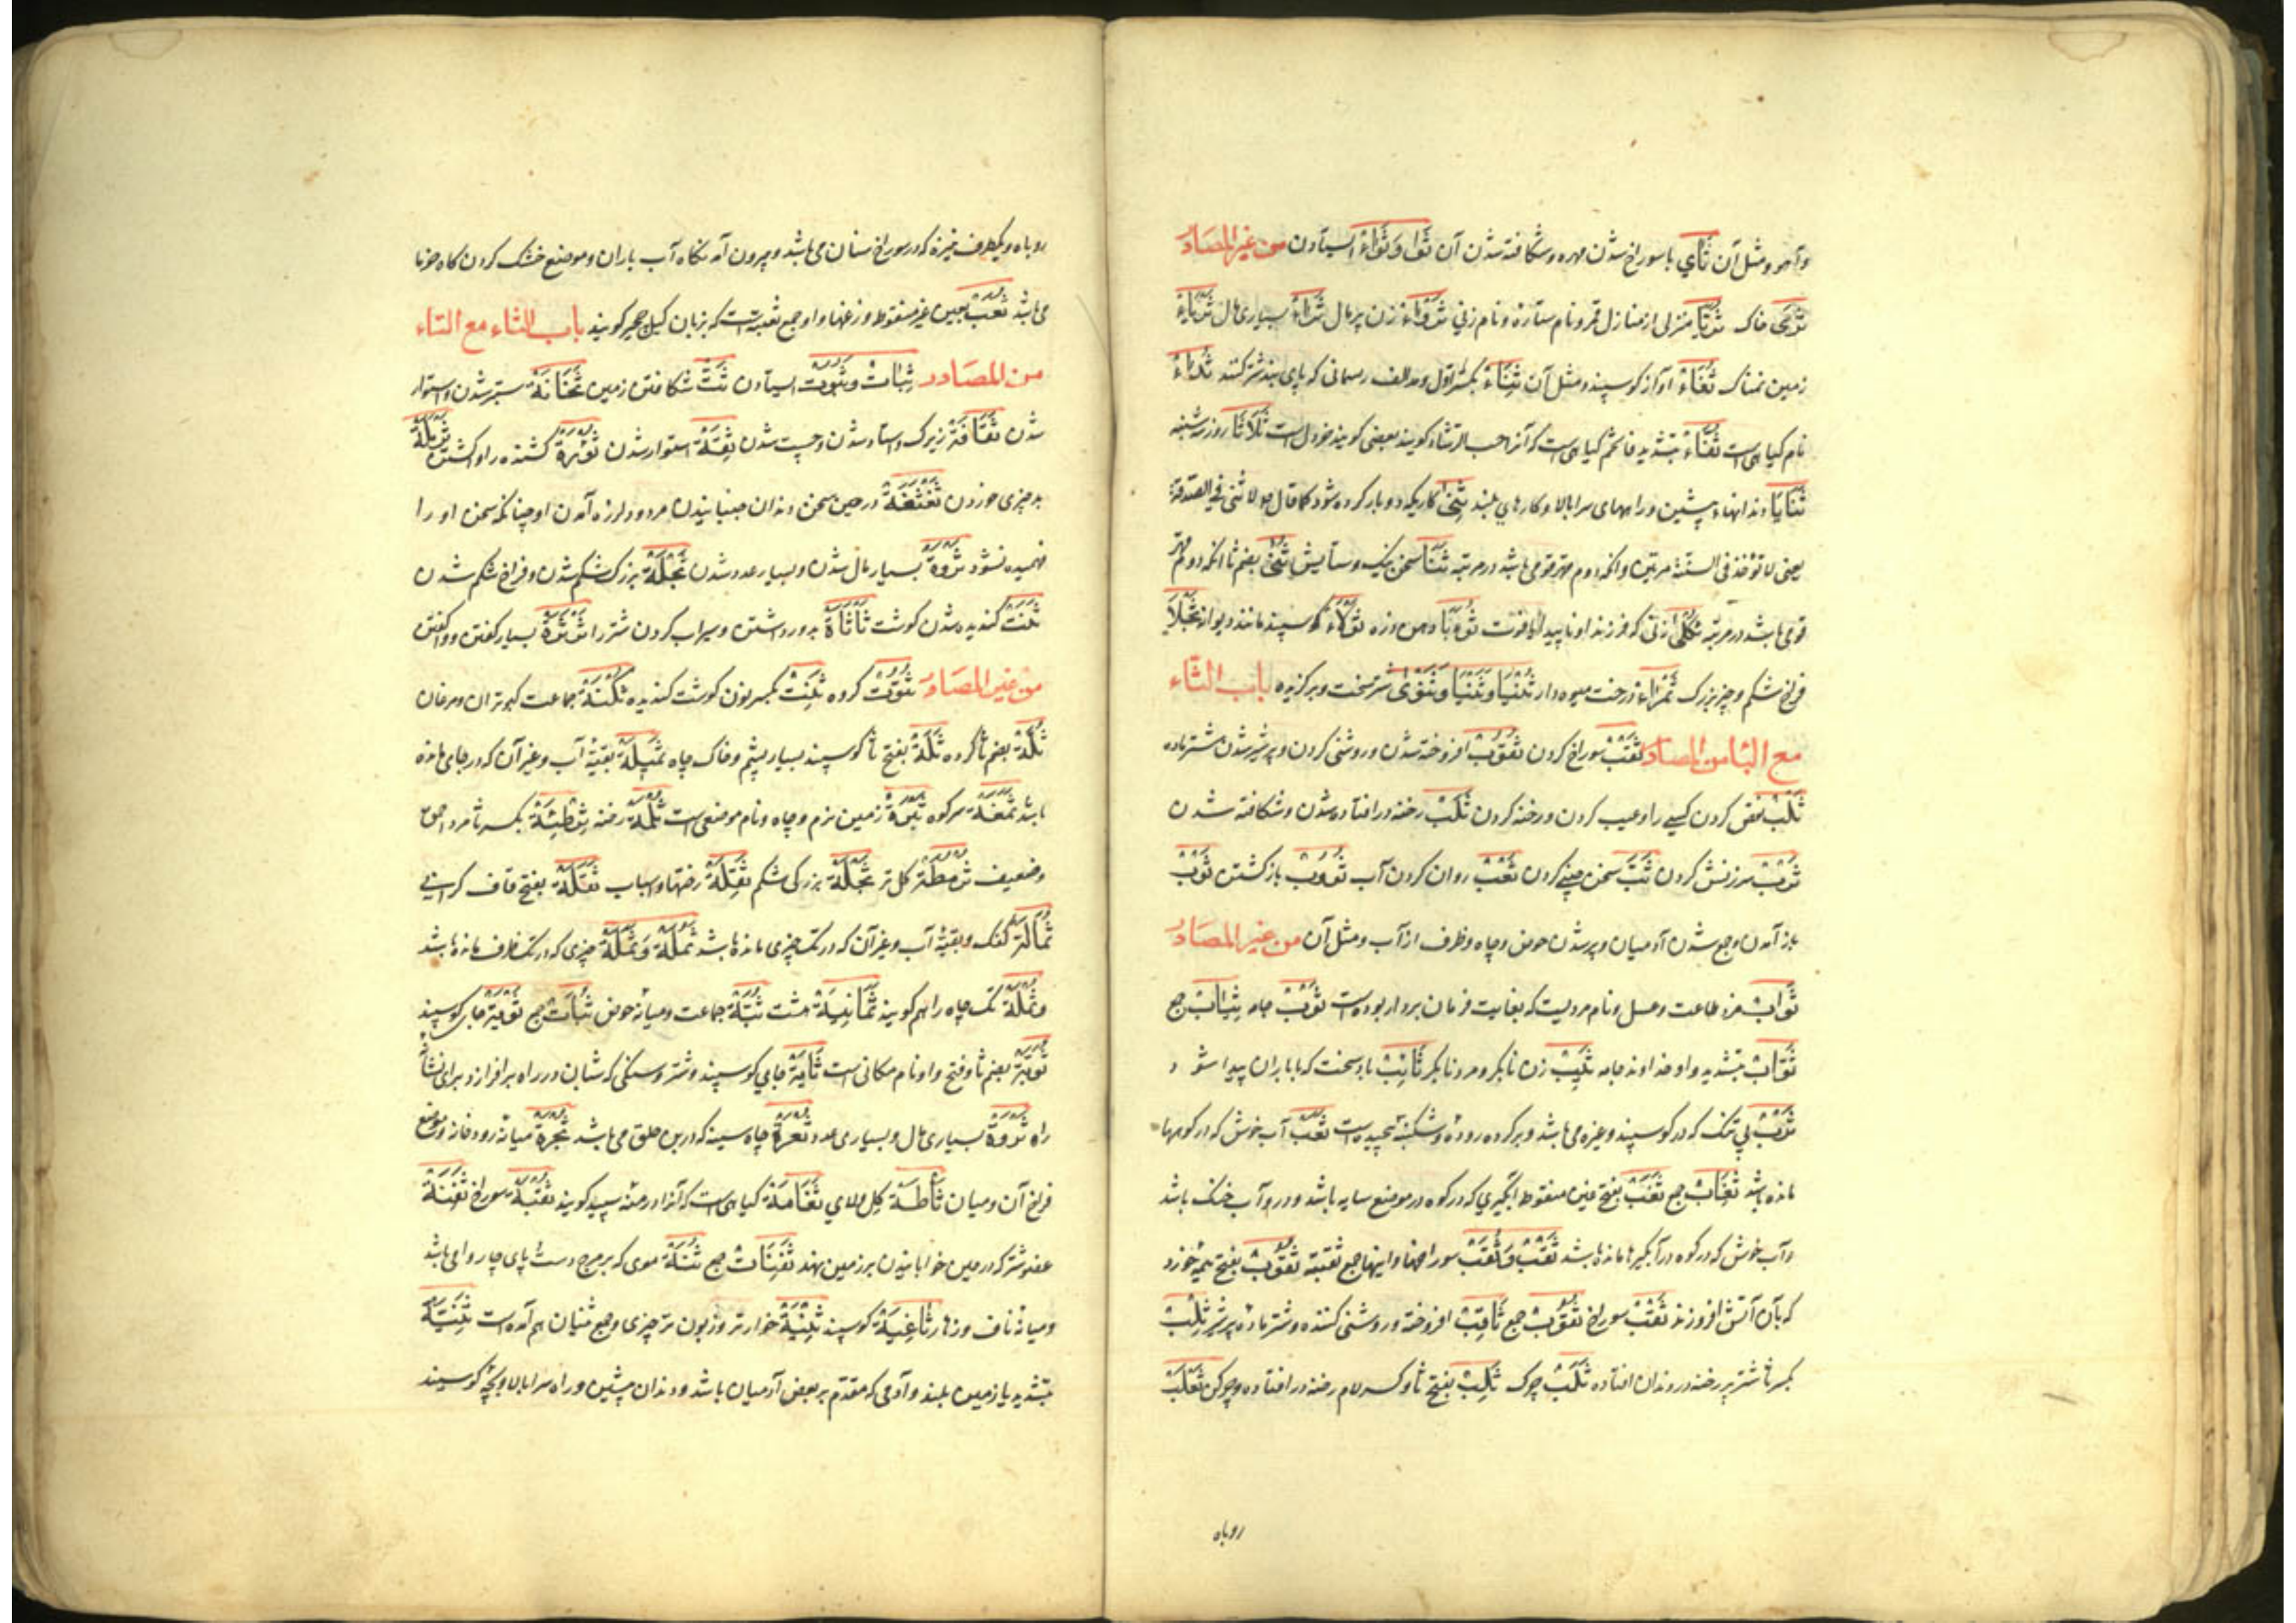 وآهو ومثل آن ثَأي با سوراخ شدن مهره وشکافته شدن آن ثَوا وثَواء ایستادن من غیر المصادر
ثَرَی خاک ثُرَیّا منزلی از منازل قمر ونام ستاره ونام زنی ثَرْوَاء زن پر مال ثَرَاء بسیاری مال ثَرْیَاء
زمین نمناک ثُغَاء آواز کوسپند ومثل آن ثِنَاء بکسر اول ومد الف ریسمانی که پای بند شتر کنند ثُدَّاء
نام کیاهی است ثُفَّاء بتشدید فا تخم کیاهی است که آنرا حب الرشاد کویند بعضی کویند خردل است ثَلَاثَا روز سه شنبه
ثَنَایَا دندانهاء پیشین وراههای سرابالا وکارهای بلند ثِنَی کاریکه دو بار کرده شود کما قال لا ثنی فی الصدقة
یعنی لا توخذ فی السنة مرتین وانکه دوم مهتر قومی باشد در مرتبه ثَنَا سخن نیک وستایش ثُنَی بضم ثا انکه دوم مهتر
قومی باشد در مرتبه ثَکْلَی زنی که فرزند او ناپیدا یا فوت ثُوَبَا دهن دره ثَوْلَاء کوسپند مانند دیوانه ثَجْلَا
فراخ شکم وچیز بزرک ثَمْرَاء درخت میوه دار ثُنْیَا وثَنْیَا وثَنْوَی سر سخت وبرکزیده باب الثاء
مع البا من المصادر ثَقْب سوراخ کردن ثُقُوب افروخته شدن وروشنی کردن وپر شیر شدن شتر ماده
ثَلْب نقص کردن کسی را وعیب کردن ورخنه کردن ثَلَب رخنه در افتاده شدن وشکافته شدن
ثَرْب سرزنش کردن ثَبَّ سخن چینی کردن ثَعْب روان کردن آب ثُوُوب باز کشتن ثَوْب
باز آمدن وجمع شدن آدمیان وپر شدن حوض وچاه وظرف از آب ومثل آن من غیر المصادر
ثَوَاب مزد طاعت وعسل ونام مردیست که بغایت فرمان بردار بوده است ثَوْب جامه ثِیَاب جمع
ثَوَّاب بتشدید واو خداوند جامه ثَیِّب زن نابکر ومرد نابکر ثَائِب باد سخت که با باران پیدا شود
ثَرْب پی تنک که در کوسپند وغیره می باشد وبر کرده روده وشکنبه پیچیده است ثَغْب آب خوش که در کوهها
مانده باشد ثِغَاب جمع ثَغَب بفتح غین منقوط آبگیری که در کوه در موضع سایه باشد ودر و آب خنک باشد
وآب خوش که در کوه در آبگیرها مانده باشد ثُقْب وثُقَب سوراخها واینها جمع ثقبه ثَقُوب بفتح هیمه خورد
که بآن آتش افروزند ثَقْب سوراخ ثُقُوب جمع ثَاقِب افروخته وروشنی کننده وشتر ماده پر شیر ثِلْب
بکسر ثا شتر پیر رخنه در دندان افتاده ثَلَب چرک ثَلِب بفتح ثا وکسر لام رخنه در افتاده وچرکن ثَعْلَب
روباه
روباه ویکطرف نیزه که در سوراخ سنان می باشد وبیرون آمدنکاه آب باران وموضع خشک کردن کاه خرما
می باشد ثُعَب بعین غیر منقوط وزغها واو جمع ثعبه است که بزبان کیل کویند باب الثاء مع التاء
من المصادر ثَبَات وثُبُوت ایستادن ثَتّ شکافتن زمین ثَخَانَة ستبر شدن واستوار
شدن ثَقَافَة زیرک واستاد شدن وچست شدن ثِقَة استوار شدن ثُؤْرَة کشنده را واکشتن ثَرْمَلَة
بد چیزی خوردن ثَغْثَغَة در حین سخن دندان جنبانیدن مرد ولرزه آمدن او چنانکه سخن او را
فهمیده نشود ثَرْوَة بسیار مال شدن وبسیار عدد شدن ثَجْلَة بزرک شکم شدن وفراخ شکم شدن
ثَنَت کندیده شدن کوشت ثَأْثَأَة بدور داشتن وسیراب کردن شتر را ثَرْثَرَة بسیار کفتن وواکفتن
من غیر المصادر کروه ثَنِت بکسر نون کوشت کندیده ثُکْنَة جماعت کبوتران ومرغان
ثُلَّة بضم ثا کروه ثَلَّة بفتح ثا کوسپند بسیار پشم وخاک چاه ثَمِیلَة بقیهٔ آب وغیر آن که در جای مانده
باشد سر کوه زمین نرم وچاه ونام موضعی است ثُلْمَة رخنه بکسر ثا مرد احمق
وضعیف ثُرْمُطَة کل تر ثُجْلَة بزرکی شکم ثَقِلَة رختها واسباب ثَقَلَة بفتح قاف کرانی
ثُمَالَة کفک وبقیهٔ آب وغیر آن که در تک چیزی مانده باشد ثَمْلَة وثَمَلَة چیزی که در تک ظرف مانده باشد
وثملة تک چاه را هم کویند ثَمَانِیَة هشت ثُبَة جماعت ومیانه حوض ثُبَات جمع ثَوِیَّة جای کوسپند
ثُوَیَّة بضم ثا وفتح واو نام مکانی است ثَایَة جای کوسپند وشتر وسنکی که شبان در راه بر افرازد برای نشان
راه ثَرْوَة بسیاری مال وبسیاری عدد ثُغْرَة چاه سینه که در بن حلق می باشد ثُجْرَة میانه رودخانه وموضع
فراخ آن ومیان ثَأْطَة کل ولای ثَغَامَة کیاهی است که آنرا درمنه سپید کویند ثُقْبَة سوراخ ثَفِنَة
عضو شتر که در حین خوابانیدن بر زمین نهد ثَفِنَات جمع ثُنَّة موی که بر دست وپای چاروا می باشد
ومیانه ناف وزهار ثَاغِیَة کوسپند ثِنْیَة خوارتر وزبون تر چیزی وجمع ثنیان هم آمده است ثَنِیَّة
بتشدید یا زمین بلند وآدمی که مقدم بر بعض آدمیان باشد ودندان پیشین وراه سرابالا وبچه کوسپند